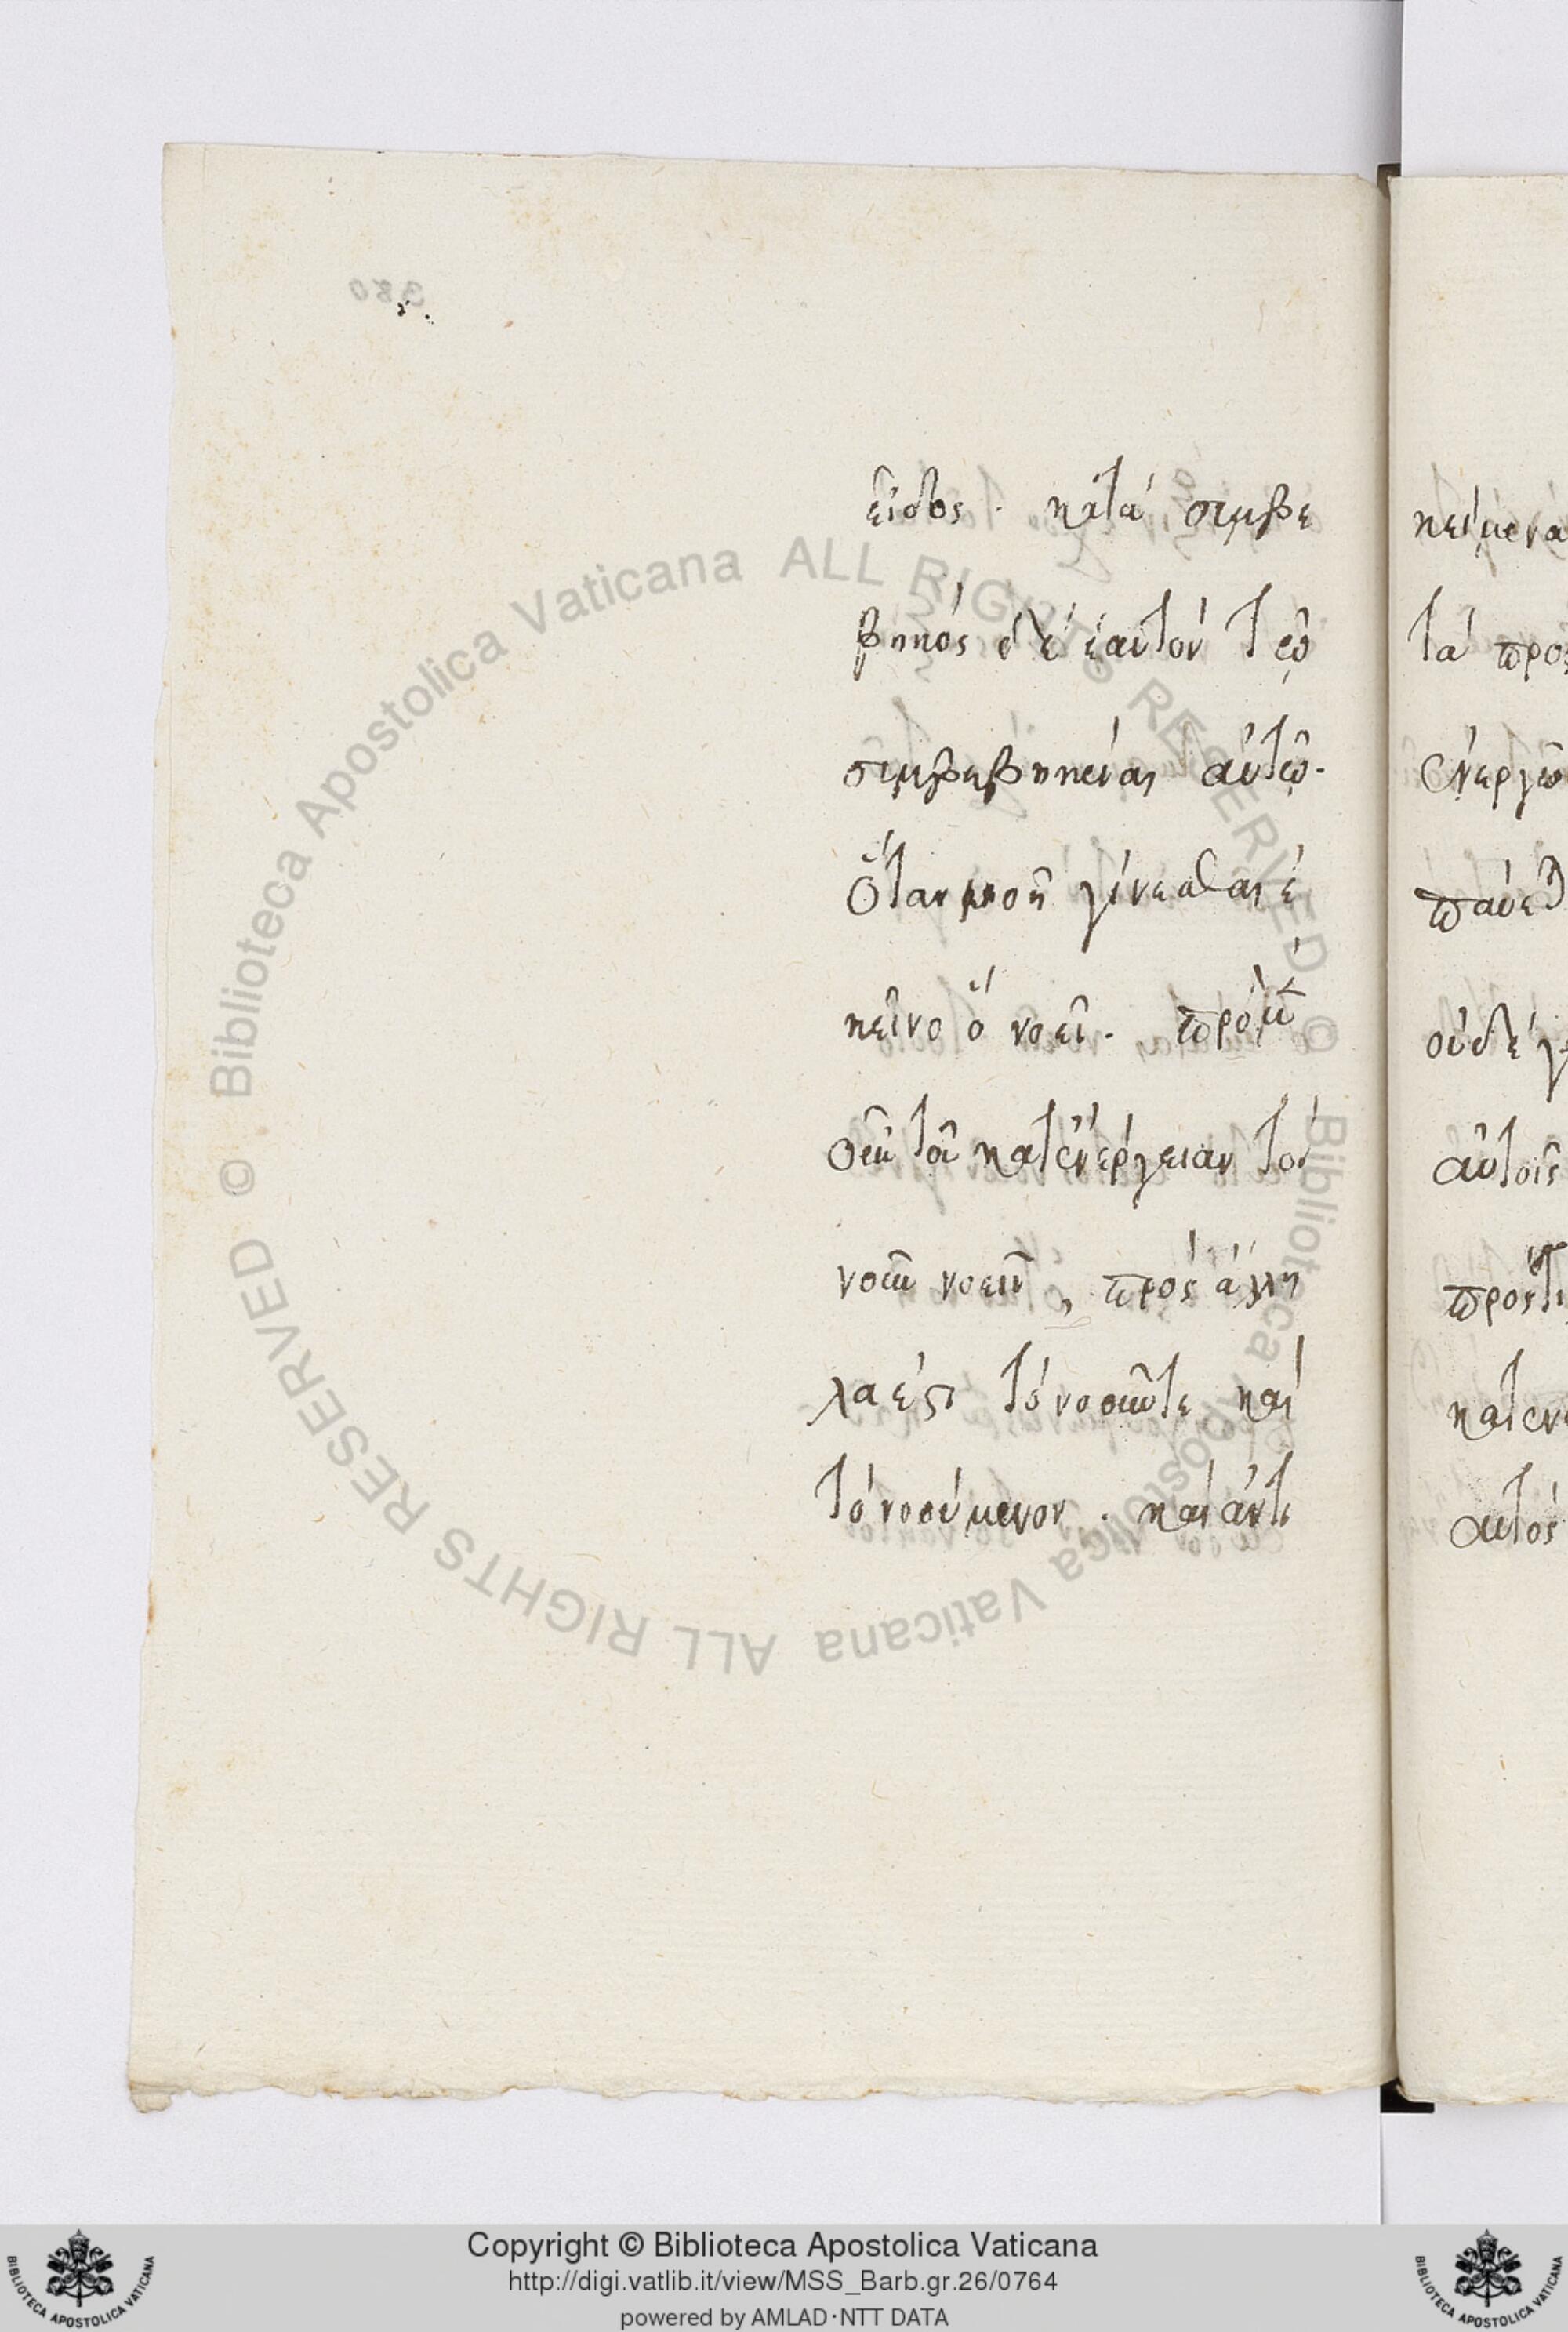 380
εἶδος · κατὰ συμβε
βηκὸς δὲ ἑαυτὸν τῷ
συμβεβηκέναι αὐτῷ.
Ὅταν νοῇ γίνεσθαι ἐ
κεῖνο ὃ νοεῖ. πρὸ μ
οὖν τοῦ κατενέργειαν τὸν
νοῦν νοεῖν, πρὸς ἄλλη
λα ἐστὶ τό νοοῦντε καὶ
τὸ νοούμενον · καὶ ἀντι
κείμενα
τὰ πρὸς
ἐνεργῶ
παύε
οὐδὲ γ
αὐτοῖς
πρὸς τι
κατεν
αὐτὸς
© Biblioteca Apostolica Vaticana ALL RIGHTS RESERVED © Biblioteca Apostolica Vaticana ALL RIGHTS RESERVED
Copyright © Biblioteca Apostolica Vaticana
http://digi.vatlib.it/view/MSS_Barb.gr.26/0764
powered by AMLAD·NTT DATA
BIBLIOTECA APOSTOLICA VATICANA
BIBLIOTECA APOSTOLICA VATICANA